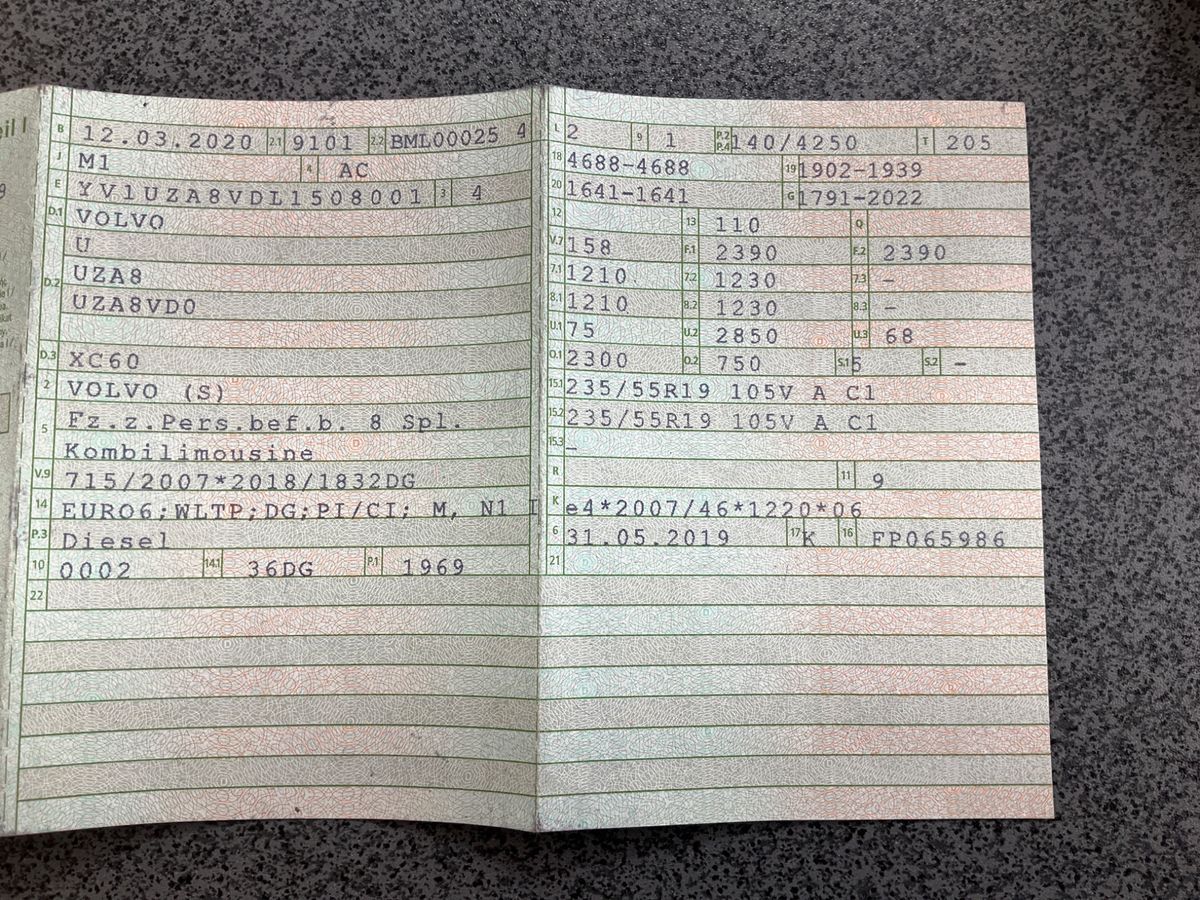 eil I
B 12.03.2020 2.1 9101 2.2 BML00025 4
J M1 4 AC
E YV1UZA8VDL1508001 3 4
D.1 VOLVO
U
D.2 UZA8
UZA8VD0
D.3 XC60
2 VOLVO (S)
5 Fz.z.Pers.bef.b. 8 Spl.
Kombilimousine
V.9 715/2007*2018/1832DG
14 EURO6;WLTP;DG;PI/CI; M, N1 I
P.3 Diesel
10 0002 14.1 36DG P.1 1969
22
L 2 9 1 P.2 P.4 140/4250 T 205
18 4688-4688 19 1902-1939
20 1641-1641 G 1791-2022
12 13 110 Q
V.7 158 F.1 2390 F.2 2390
7.1 1210 7.2 1230 7.3 -
8.1 1210 8.2 1230 8.3 -
U.1 75 U.2 2850 U.3 68
O.1 2300 O.2 750 S.1 5 S.2 -
15.1 235/55R19 105V A C1
15.2 235/55R19 105V A C1
15.3 -
R 11 9
K e4*2007/46*1220*06
6 31.05.2019 17 K 16 FP065986
21